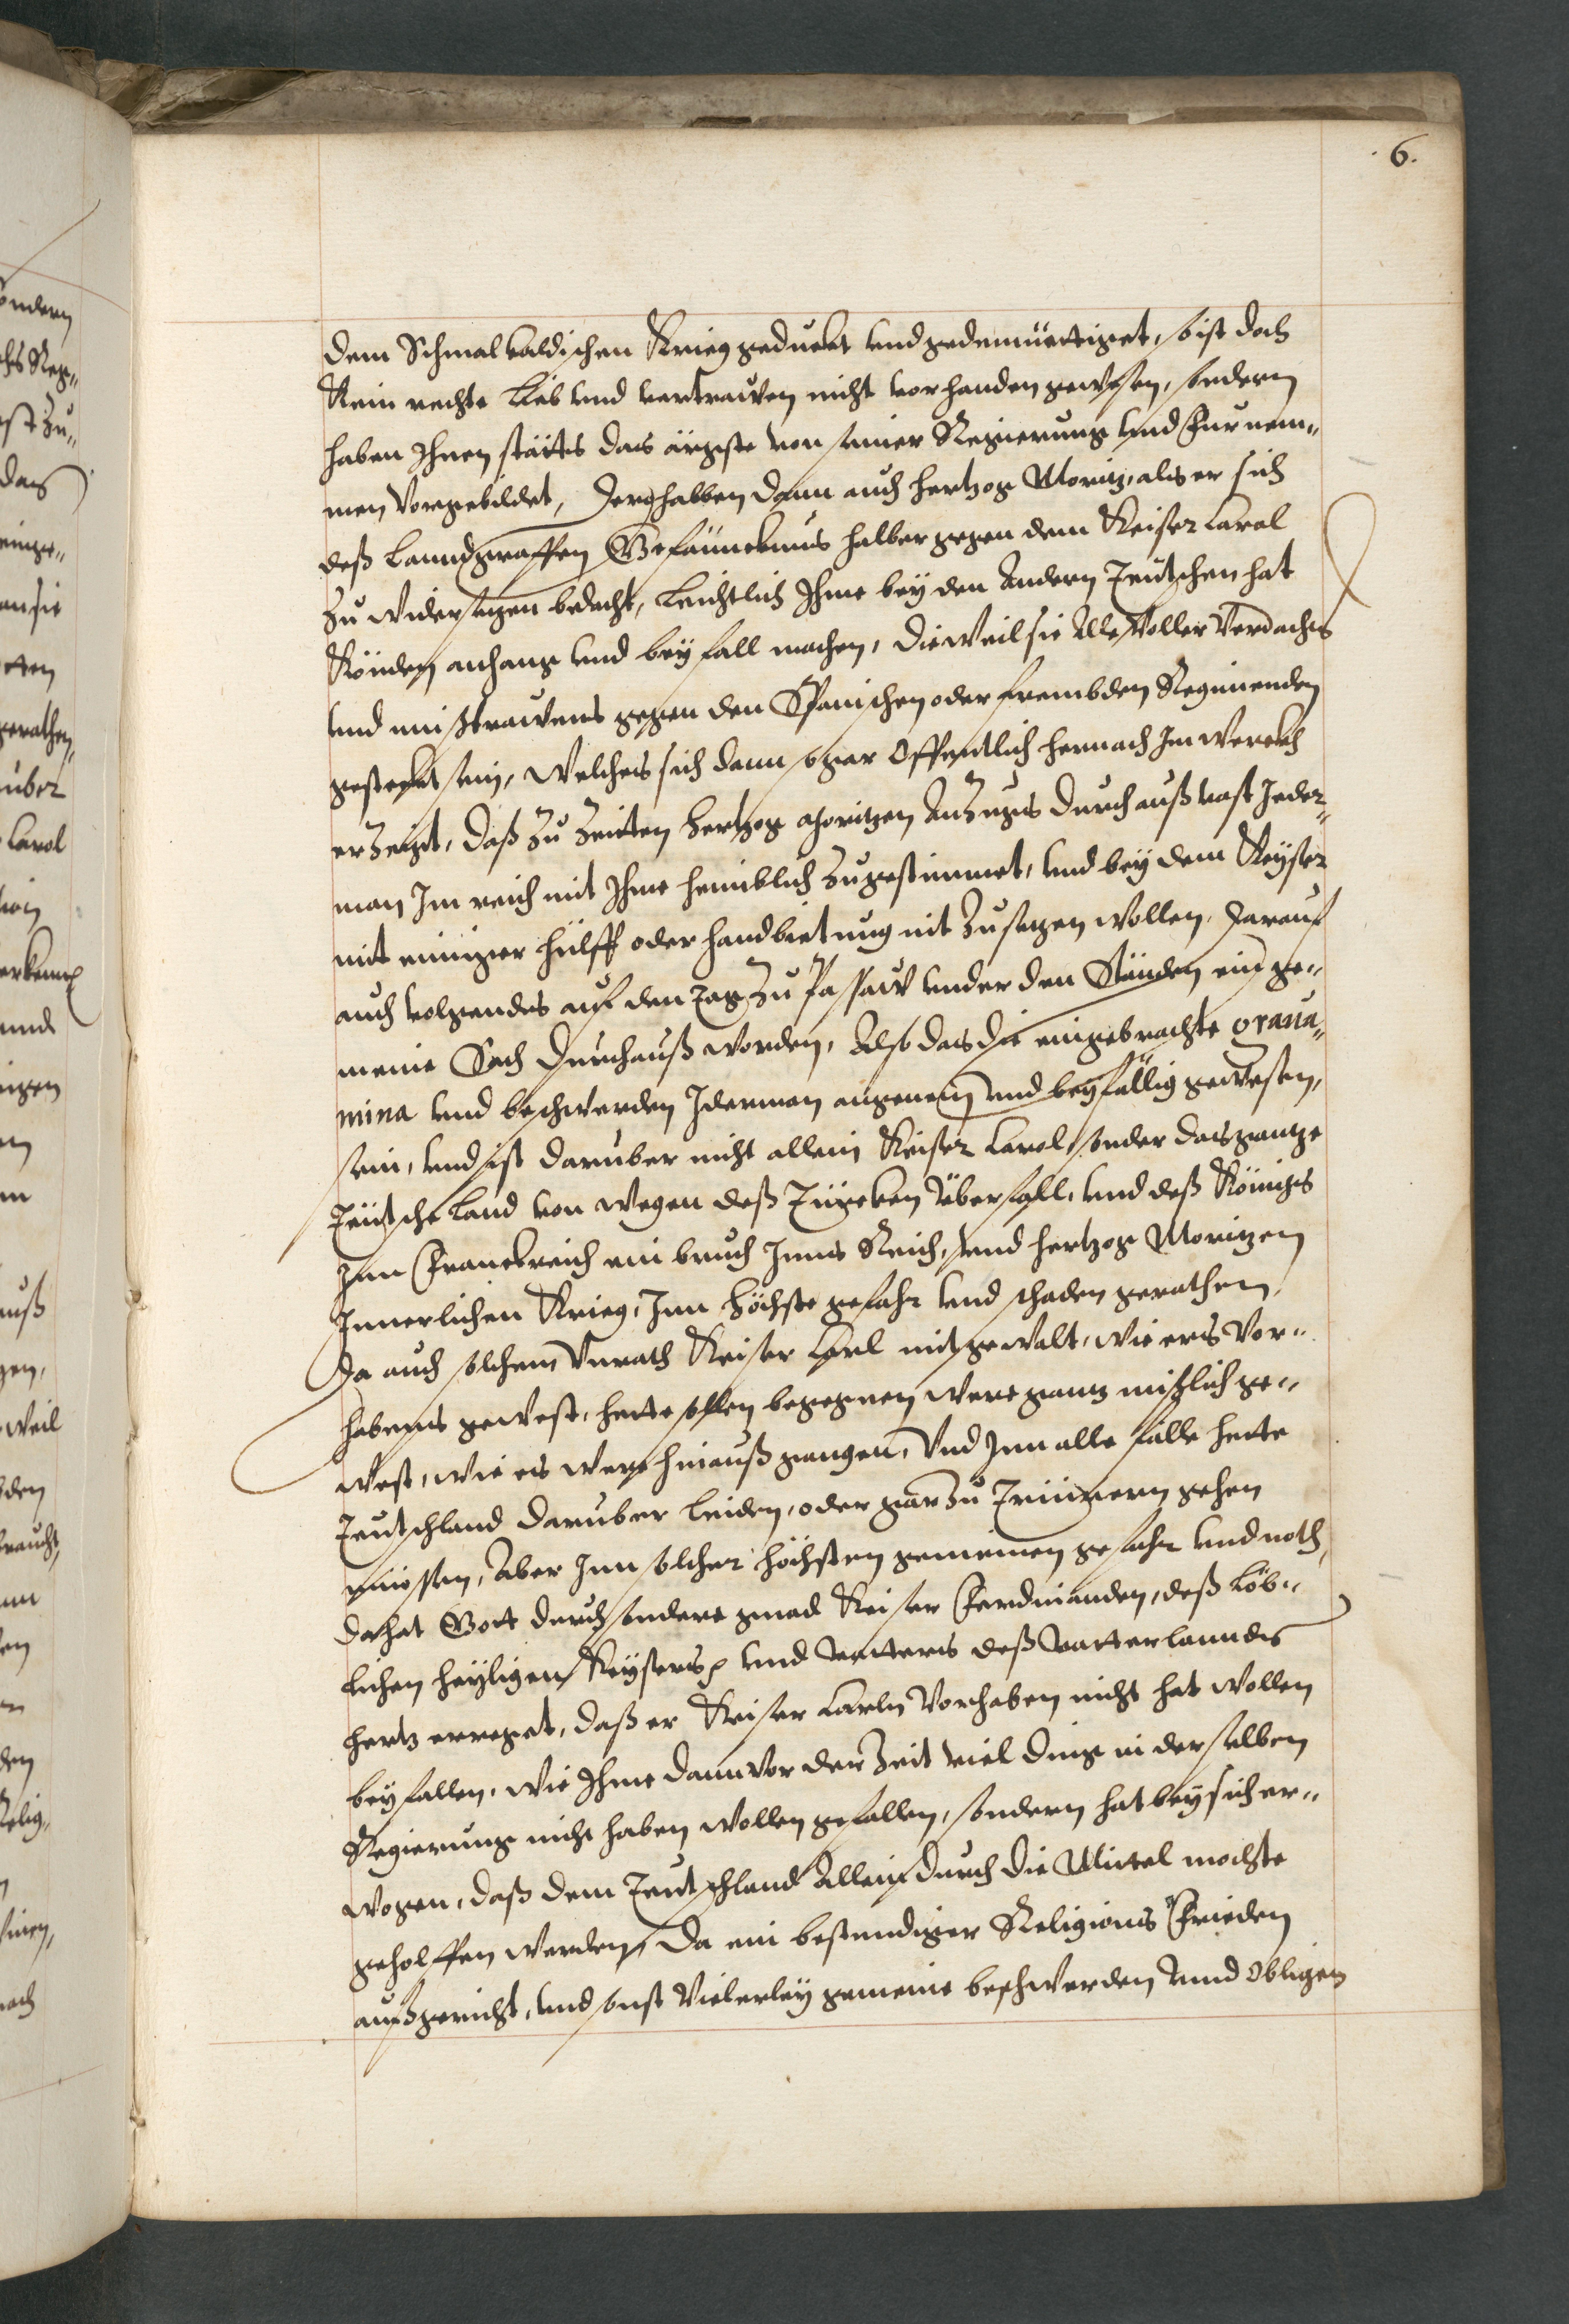 6.
dem Schmalkaldischen Krieg geduckt und gedemüettiget, so ist doch
Kein rechte Lieb und vertrawen nicht vorhanden gewesen, sondern
haben Ihnen stätts das ärgste von seiner Regierung und Furnem„
men Vorgebildet, Derohalben dann auch Hertzog Moritz, als er sich
deß Lanndgraffen Gefäncknus halber gegen dem Keiser Carol
zu widersetzen bedacht, Leichtlich Ihme bey den Andern Teutschen hat
Könden anhang und beyfall machen, Dieweil sie Alle Voller Verdachts
und mißtrawens gegen den Spanischen oder frembden Regimenden
gesteckt sein, Welches sich dann sogar Offentlich hernach Im Werckh
erzeigt, daß zu Zeitten Hertzog Moritzen Anzugs durchauß vast Jeder„
man Im reich mit Ihme heimblich zugestimmet, und bey dem Keyser
mit einniger hülff oder handbietnug nit zusetzen wollen. Darauf
auch volgendes auf den Tag zu Passaw under den Stånden ein ge„
meine Sach durchauß worden, Also das die eingebrachte graua„
mina und beschwerden Jderman angenem und beyfällig gewesen,
sein, und ist daruber nicht allein Keiser Carol, sonder das gantze
Teutsche Land von wegen deß Türcken Überfall, und deß Königs
Inn Franckreich ein bruch Inns Reich, und Hertzog Moritzen
Innerlichen Krieg, Inn höchste gefahr und schaden gerathen,
Da auch solchem Vnrath Keiser Carl mit gewalt, wie ers Vor„
habens gewest, hette sollen begegnen were gantz mißlich ge„
west, wie es were hinauß gangen, Vnd Inn alle fälle hette
Teutschland daruber leiden, oder gar zu Trümmern gehen
muossen, Aber Inn solcher höchsten gemeinen gefahr und noth,
da hat Gott durch sondere gnad Keiser Ferdinanden, deß Löb„
lichen heyligen Keysers und vatters deß Vatterlanndes
hertz erreget, daß er Keiser Carln Vorhaben nicht hat wollen
beyfallen, wie Ihme dann vor der Zeit viel ding in derselben
Regierung nicht haben wollen gefallen, sondern hat bey sich er„
wogen, daß dem Teutschland Allein durch die Mittel mochte
geholffen werden, Da ein bestendiger Religions Frieden
aufgericht, und sonst Vielerley gemeine beschwerden unnd Obligen